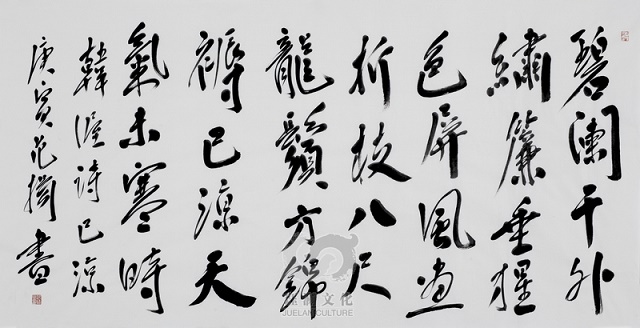 碧闌干外
繡簾垂猩
色屏風畫
折枝八尺
龍鬚方錦
褥已涼天
氣未寒時
韓偓詩已涼
庚寅范書
文化
JUELAN CULTURE